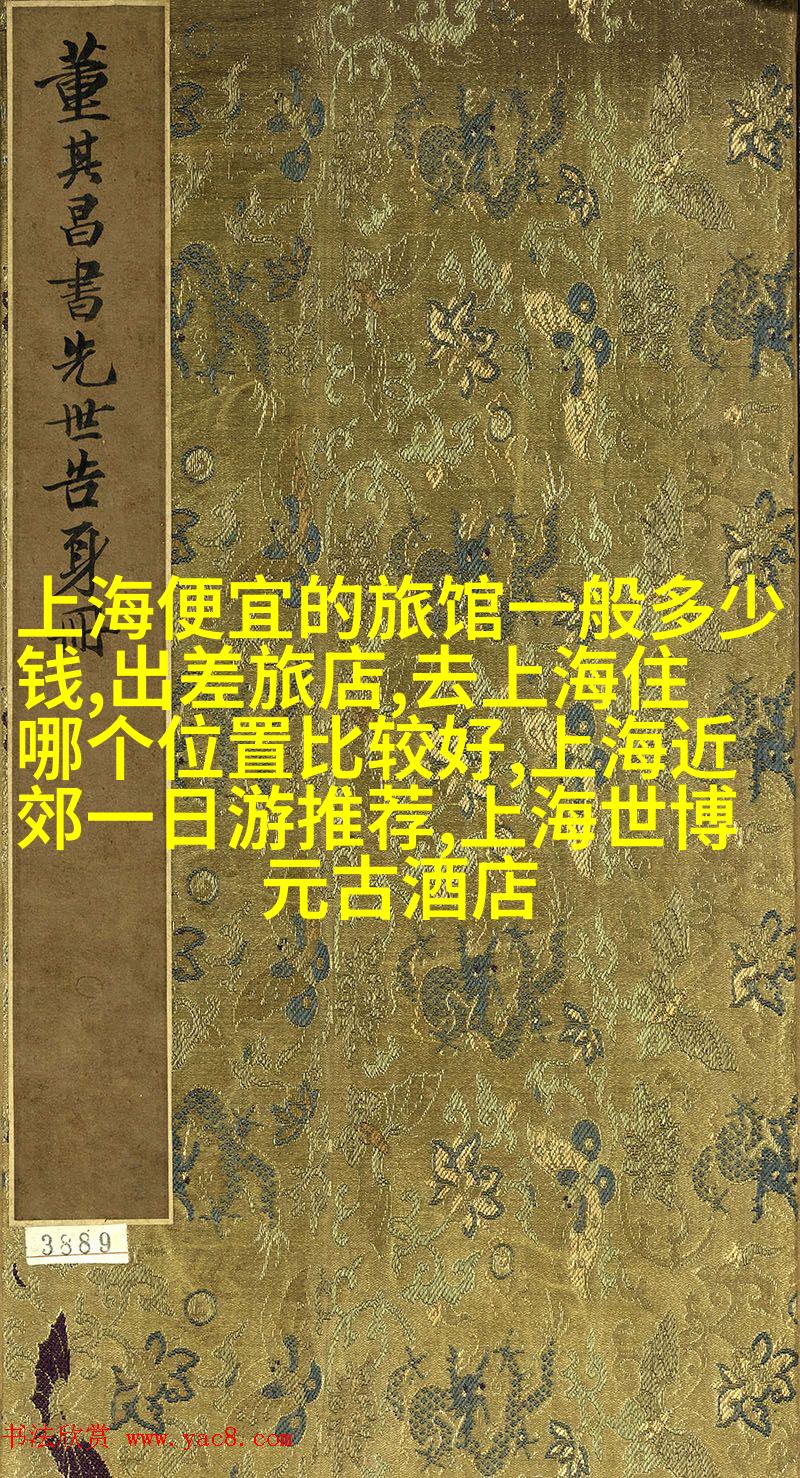 董其昌書先世告身冊
上海便宜的旅馆一般多少
钱,出差旅店,去上海住
哪个位置比较好,上海近
郊一日游推荐,上海世博
元古酒店
3889
书法欣赏 www.yac8.com